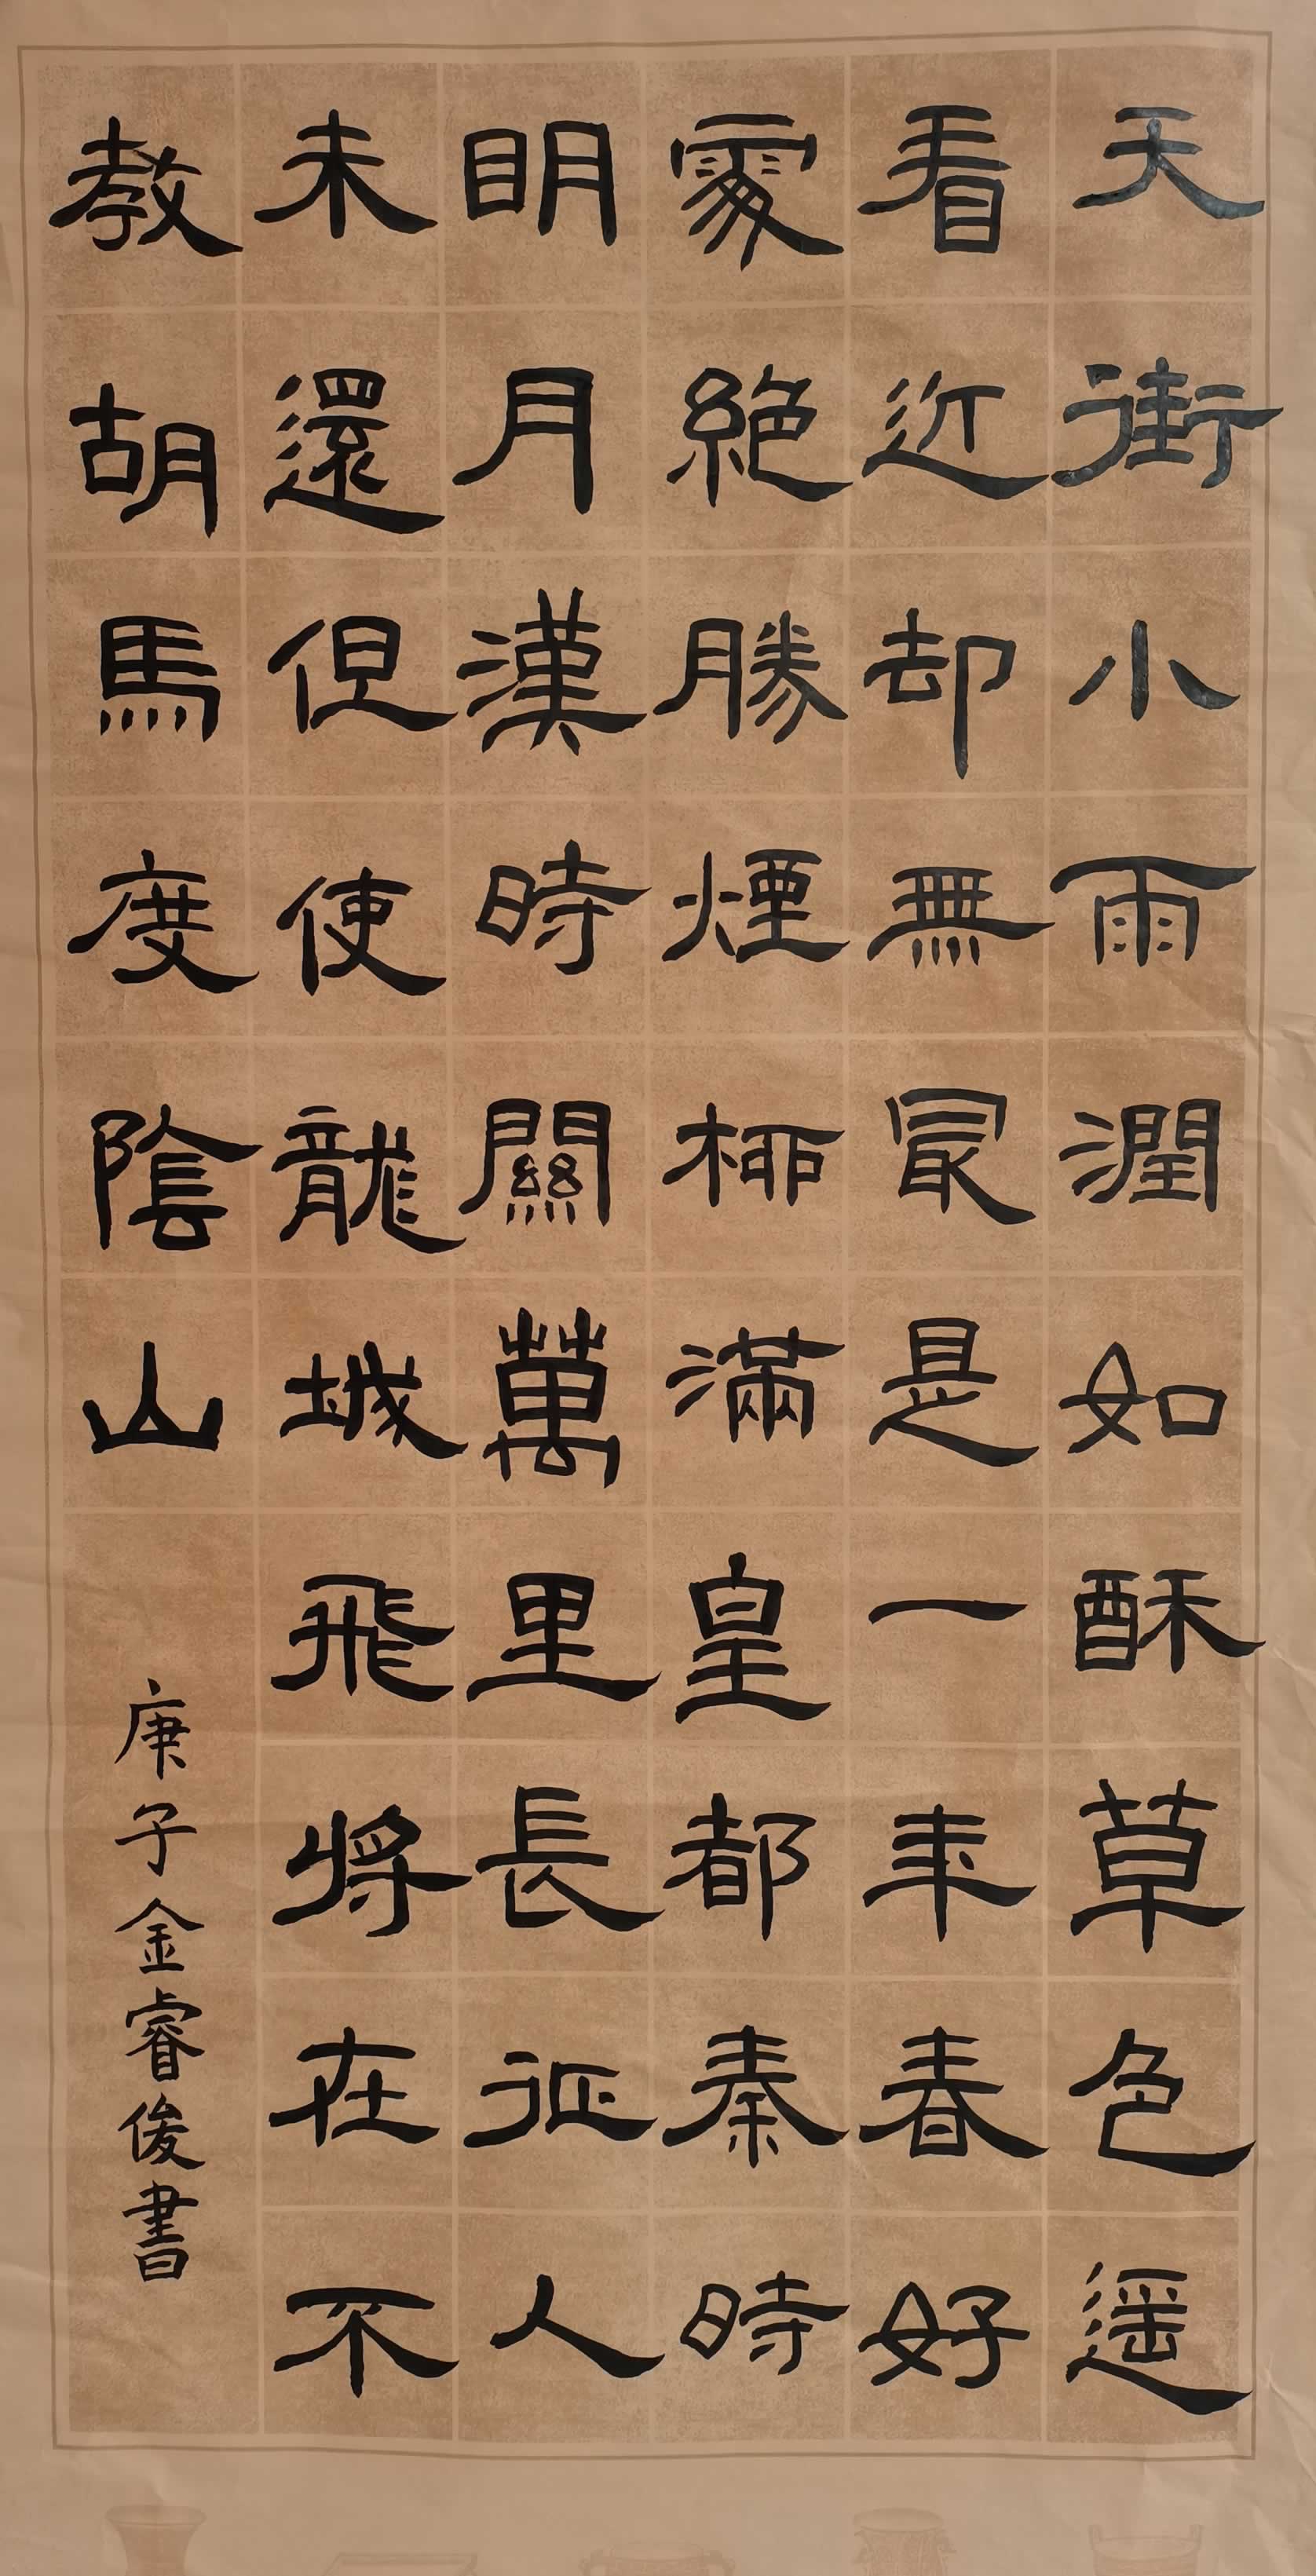 天街小雨潤如酥草色遥
看近却無冣是一年春好
處絶勝煙柳滿皇都秦時
明月漢時關萬里長征人
未還但使龍城飛將在不
教胡馬度陰山
庚子金睿俊書